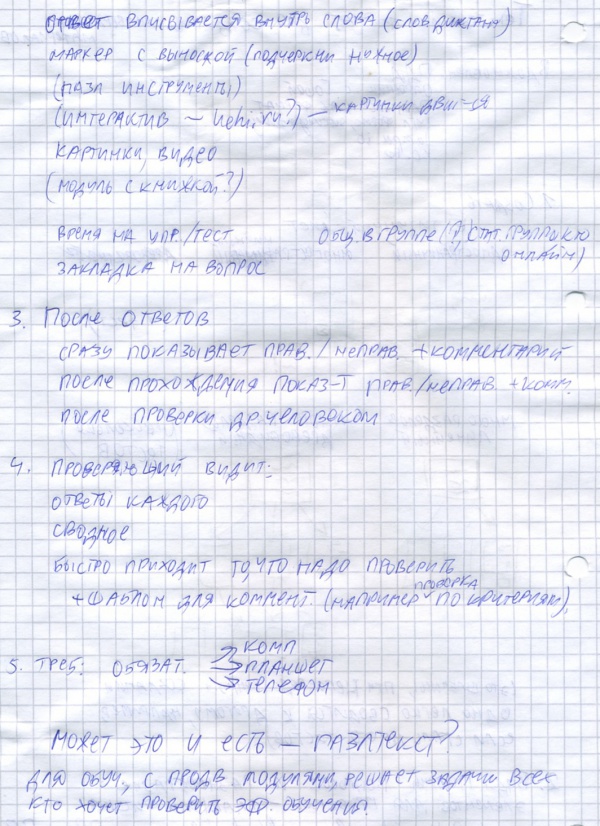 ответ вписывается внутрь слова (слов. диктант)
маркер с выноской (подчеркни нужное)
(пазл инструменты)
(интерактив ~ ?) — картинки двиг-ся
картинки, видео
(модуль с книжкой?)
время на упр./тест общ. в группе (?, стат. группы
онлайн)
закладка на вопрос
3. После ответов
сразу показывает прав./неправ. + комментарий
после прохождения показ-т прав./неправ. + комм.
после проверки др. человоком
4. Проверяющий видит:
ответы каждого
сводное
быстро приходит то, что надо проверить
+ шаблон для коммент. (например проверка по критериям)
5. Треб: обязат. комп
планшет
телефон
Может это и есть — пазлтекст?
для обуч., с продв. модулями, решает задачи всех
кто хочет проверить эф. обучения.